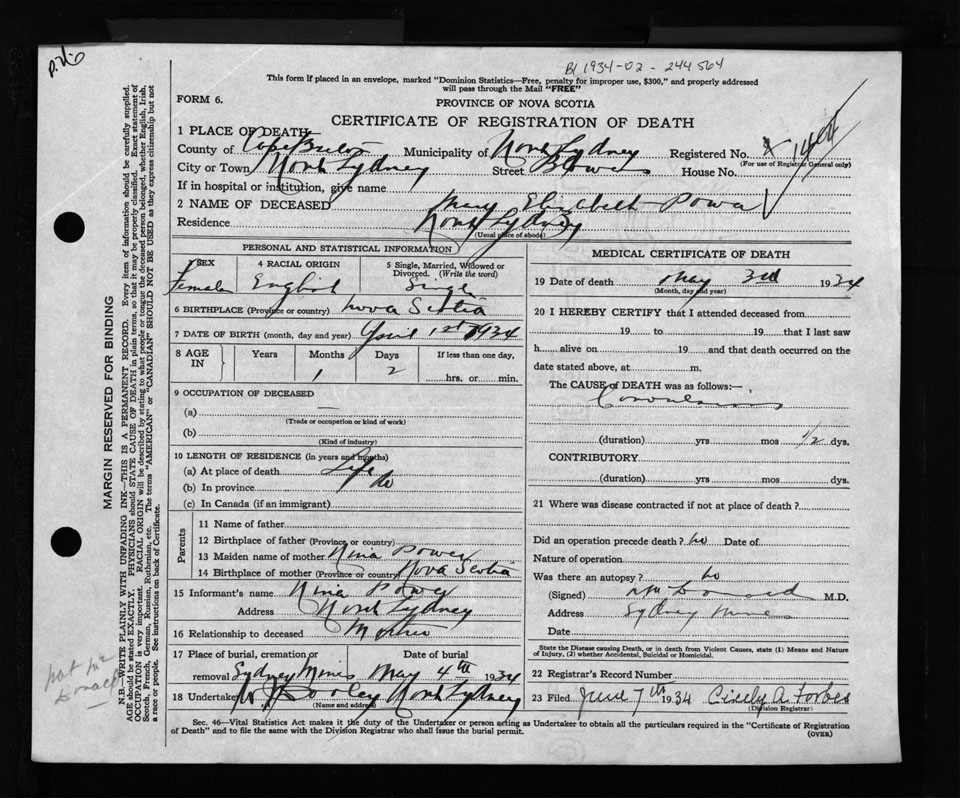 P.210
B1 1934-02-244564
This form if placed in an envelope, marked "Dominion Statistics—Free, penalty for improper use, $300," and properly addressed
will pass through the Mail "FREE"
FORM 6.
PROVINCE OF NOVA SCOTIA
CERTIFICATE OF REGISTRATION OF DEATH
1 PLACE OF DEATH
County of Cape Breton Municipality of North Sydney Registered No.
(For use of Registrar General only)
City or Town North Sydney Street House No.
If in hospital or institution, give name
2 NAME OF DECEASED Mary Elizabeth Power
Residence North Sydney
(Usual place of abode)
PERSONAL AND STATISTICAL INFORMATION
3 SEX 4 RACIAL ORIGIN 5 Single, Married, Widowed or
Divorced. (Write the word)
Female English Single
6 BIRTHPLACE (Province or country) Nova Scotia
7 DATE OF BIRTH (month, day and year) April 1st 1934
8 AGE IN Years Months Days If less than one day,
1 2 hrs. or min.
9 OCCUPATION OF DECEASED
(a) —
(Trade or occupation or kind of work)
(b)
(Kind of industry)
10 LENGTH OF RESIDENCE (in years and months)
(a) At place of death Life
(b) In province do
(c) In Canada (if an immigrant)
Parents
11 Name of father
12 Birthplace of father (Province or country)
13 Maiden name of mother Nina Power
14 Birthplace of mother (Province or country) Nova Scotia
15 Informant's name Nina Power
Address North Sydney
16 Relationship to deceased Mother
17 Place of burial, cremation or Date of burial
removal Sydney Mines May 4th 1934
18 Undertaker North Sydney
(Name and address)
MEDICAL CERTIFICATE OF DEATH
19 Date of death May 3rd 1934
(Month, day and year)
20 I HEREBY CERTIFY that I attended deceased from
19 to 19, that I last saw
h alive on 19 and that death occurred on the
date stated above, at m.
The CAUSE of DEATH was as follows:—
Convulsions
(duration) yrs mos 1/2 dys.
CONTRIBUTORY
(duration) yrs mos dys.
21 Where was disease contracted if not at place of death?
Did an operation precede death? no Date of
Nature of operation
Was there an autopsy? no
(Signed) M.D.
Address Sydney Mines
Date
State the Disease causing Death, or in death from Violent Causes, state (1) Means and Nature
of Injury, (2) whether Accidental, Suicidal or Homicidal.
22 Registrar's Record Number
23 Filed June 7th 1934 Cicely A. Forbes
(Division Registrar)
Sec. 46—Vital Statistics Act makes it the duty of the Undertaker or person acting as Undertaker to obtain all the particulars required in the "Certificate of Registration
of Death" and to file the same with the Division Registrar who shall issue the burial permit. (OVER)
MARGIN RESERVED FOR BINDING
N.B.—WRITE PLAINLY WITH UNFADING INK—THIS IS A PERMANENT RECORD. Every item of information should be carefully supplied.
AGE should be stated EXACTLY. PHYSICIANS should STATE CAUSE OF DEATH in plain terms, so that it may be properly classified. Exact statement of
OCCUPATION is very important. RACIAL ORIGIN will be described by stating to what people or tongue the deceased person belonged, whether English, Irish,
Scotch, French, German, Russian, Ruthenian, etc. The terms "AMERICAN" or "CANADIAN" SHOULD NOT BE USED as they express citizenship but not
a race or people. See instructions on back of Certificate.